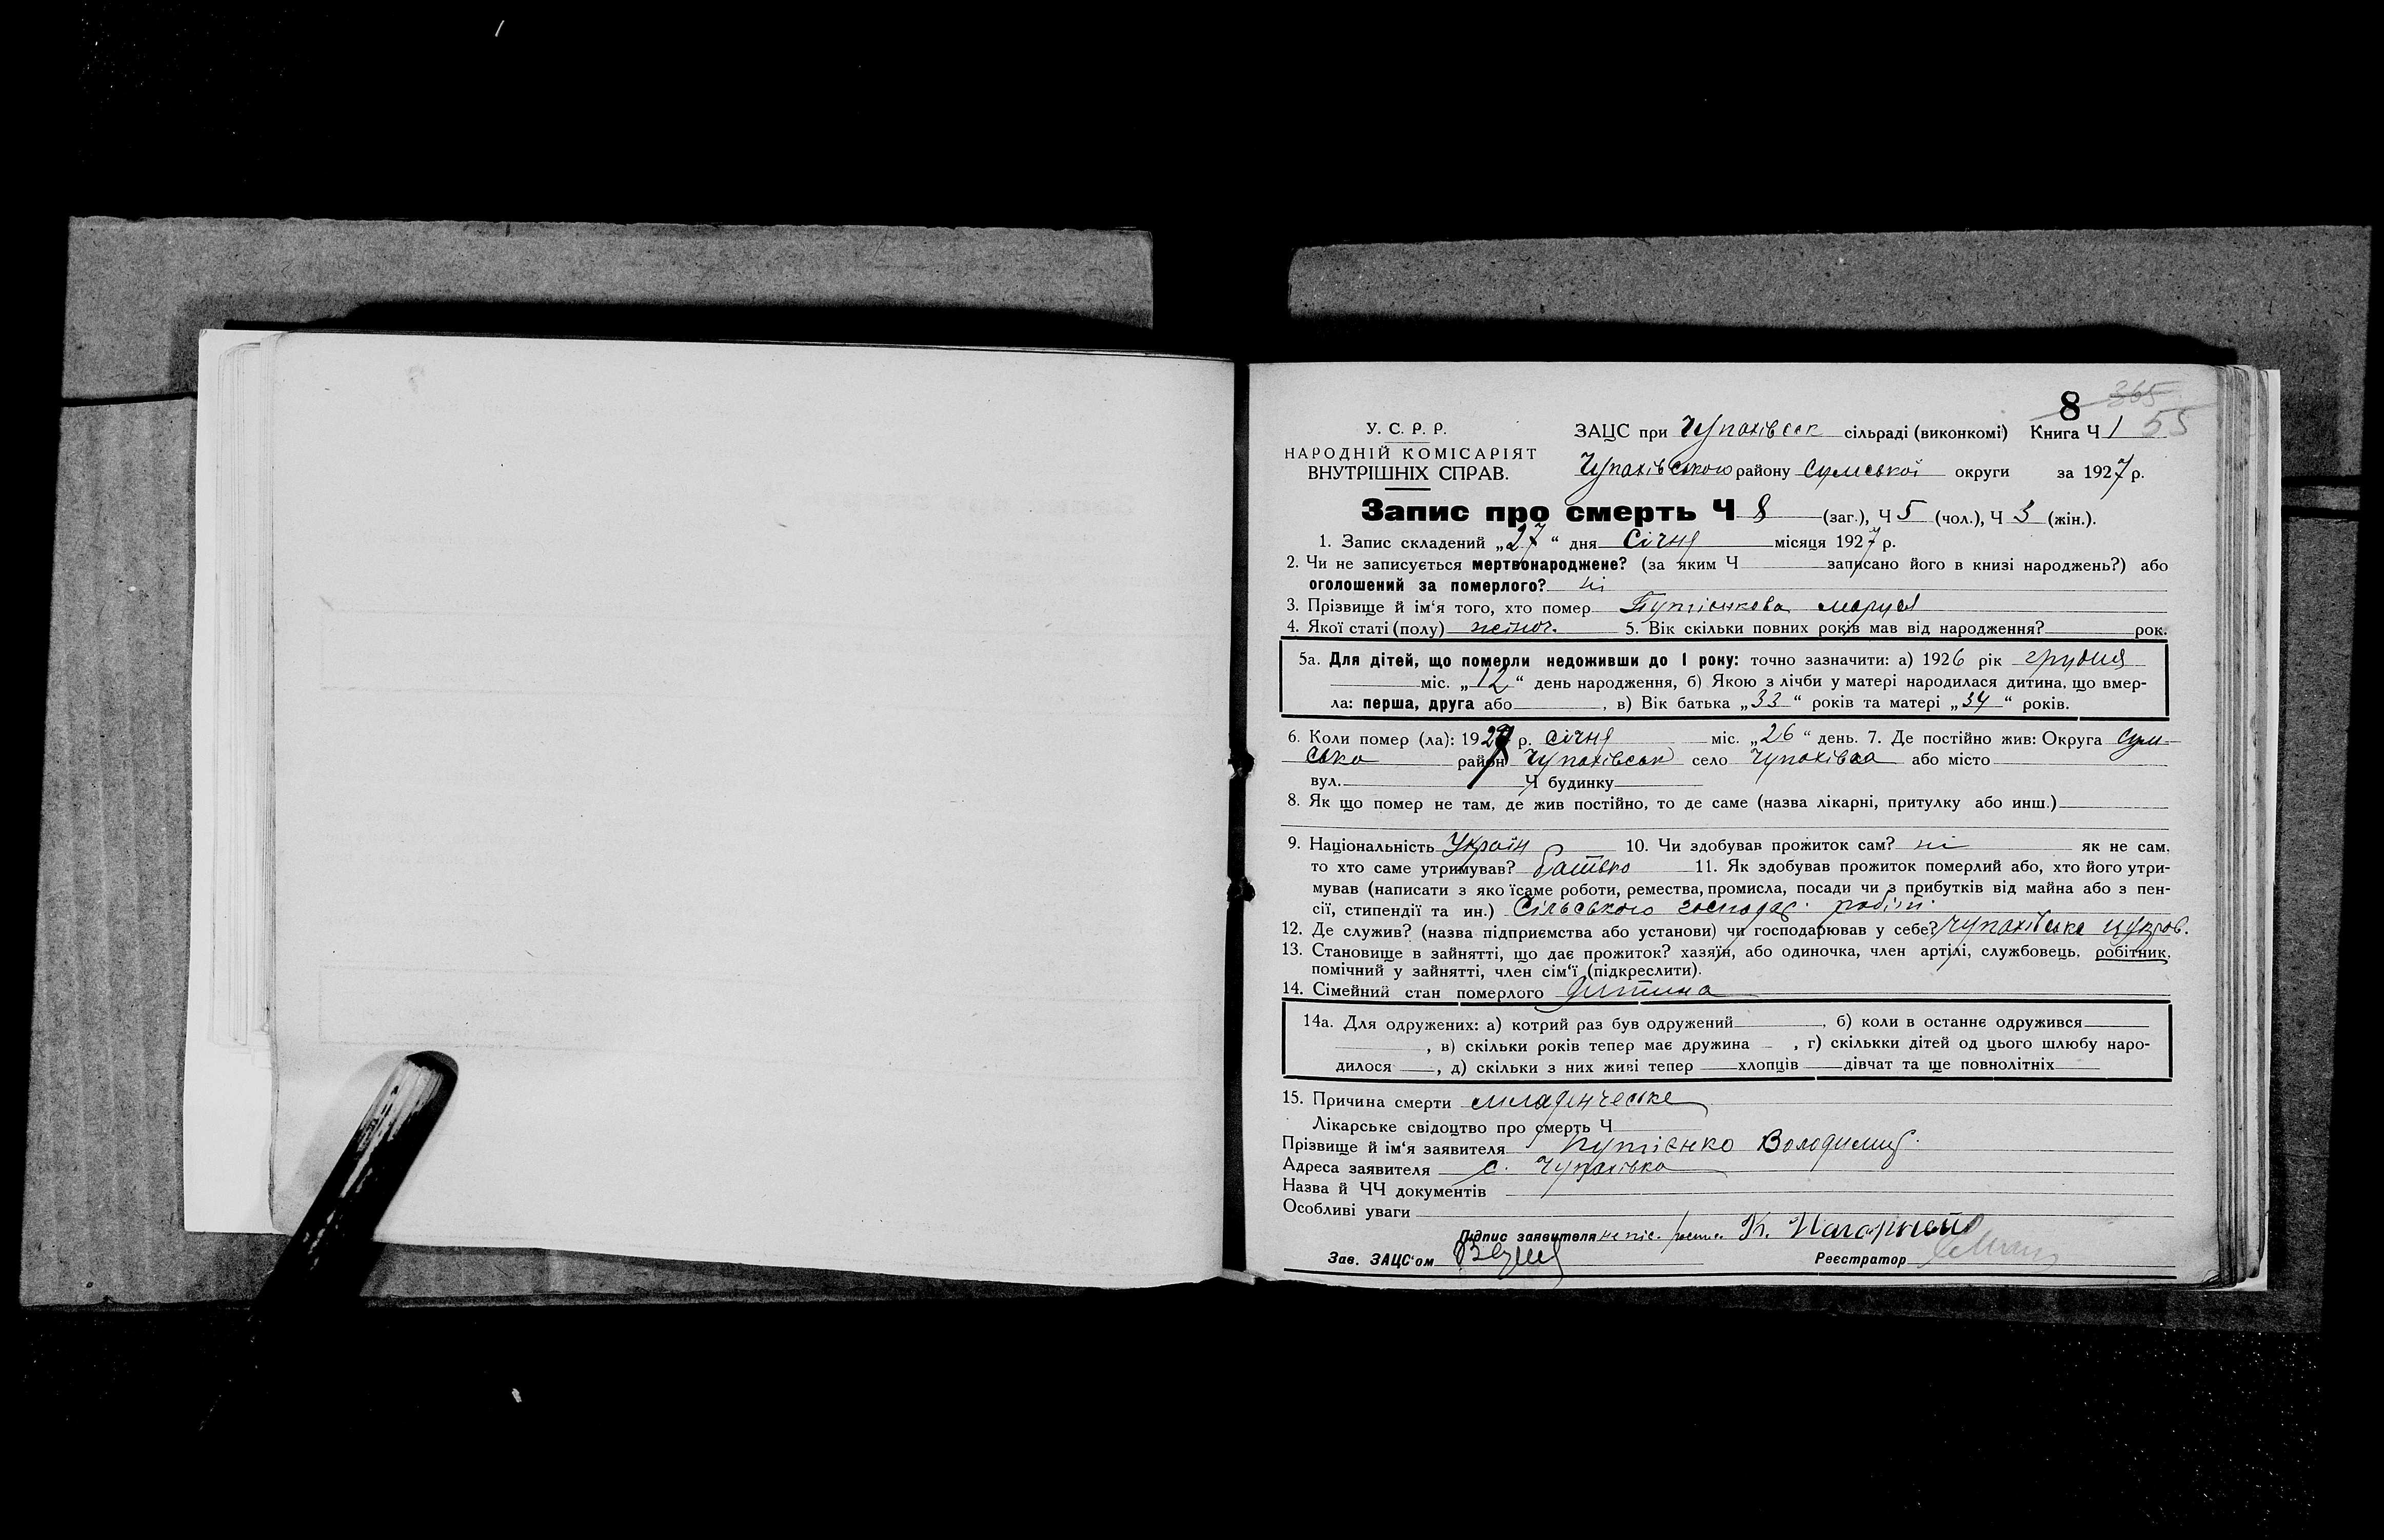 8 365
55
У. С. Р. Р.
НАРОДНІЙ КОМІСАРІЯТ
ВНУТРІШНІХ СПРАВ.
ЗАЦС при Чупахівськ сільраді (виконкомі) Книга Ч 1
Чупахівського району Сумської округи за 1927 р.
Запис про смерть Ч 8 (заг.), Ч 5 (чол.), Ч 3 (жін.).
1. Запис складений „27“ дня Січня місяця 1927 р.
2. Чи не записується мертвонароджене? (за яким Ч записано його в книзі народжень?) або
оголошений за померлого? ні
3. Прізвище й ім‘я того, хто помер Маруся
4. Якої статі (полу) жіноч. 5. Вік скільки повних років мав від народження? рок.
5а. Для дітей, що померли недоживши до 1 року: точно зазначити: а) 1926 рік грудня
міс. „12“ день народження, б) Якою з лічби у матері народилася дитина, що вмер-
ла: перша, друга або , в) Вік батька „33“ років та матері „34“ років.
6. Коли помер (ла): 1927 р. Січня міс. „26“ день. 7. Де постійно жив: Округа Сум-
ська район Чупахівськ село Чупахівка або місто
вул. Ч будинку
8. Як що помер не там, де жив постійно, то де саме (назва лікарні, притулку або инш.)
9. Національність Україн 10. Чи здобував прожиток сам? ні як не сам,
то хто саме утримував? батько 11. Як здобував прожиток померлий або, хто його утри-
мував (написати з яко їсаме роботи, ремества, промисла, посади чи з прибутків від майна або з пен-
сії, стипендії та ин.) Сільського господар. робіт.
12. Де служив? (назва підприємства або установи) чи господарював у себе? Чупахівська цукров.
13. Становище в зайнятті, що дає прожиток? хазяїн, або одиночка, член артілі, службовець, робітник,
помічний у зайнятті, член сім‘ї (підкреслити).
14. Сімейний стан померлого дитина
14а. Для одружених: а) котрий раз був одружений , б) коли в останнє одружився
, в) скільки років тепер має дружина , г) скількки дітей од цього шлюбу наро-
дилося , д) скільки з них живі тепер хлопців дівчат та ще повнолітніх
15. Причина смерти младенческе
Лікарське свідоцтво про смерть Ч
Прізвище й ім‘я заявителя Путієнко Володимир
Адреса заявителя с. Чупахівка
Назва й ЧЧ документів
Особливі уваги
Підпис заявителя К.
Зав. ЗАЦС‘ом Реєстратор